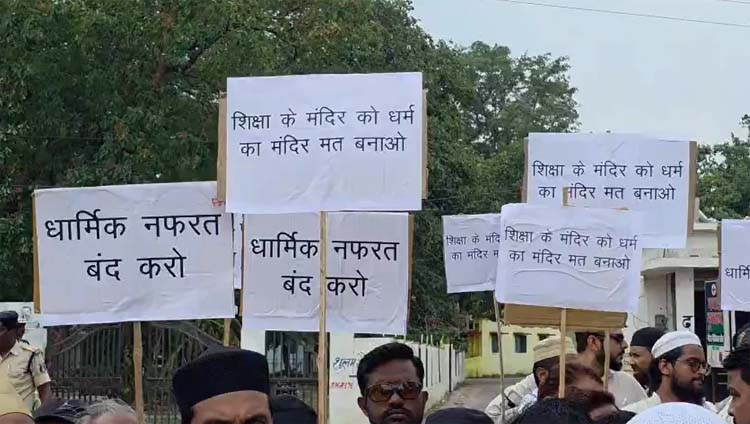 शिक्षा के मंदिर को धर्म
का मंदिर मत बनाओ
धार्मिक नफरत
बंद करो
धार्मिक नफरत
बंद करो
शिक्षा के मंदिर को धर्म
का मंदिर मत बनाओ
शिक्षा के मंदि
का मंदिर म
शिक्षा के मंदिर को धर्म
का मंदिर मत बनाओ
धार्
बं